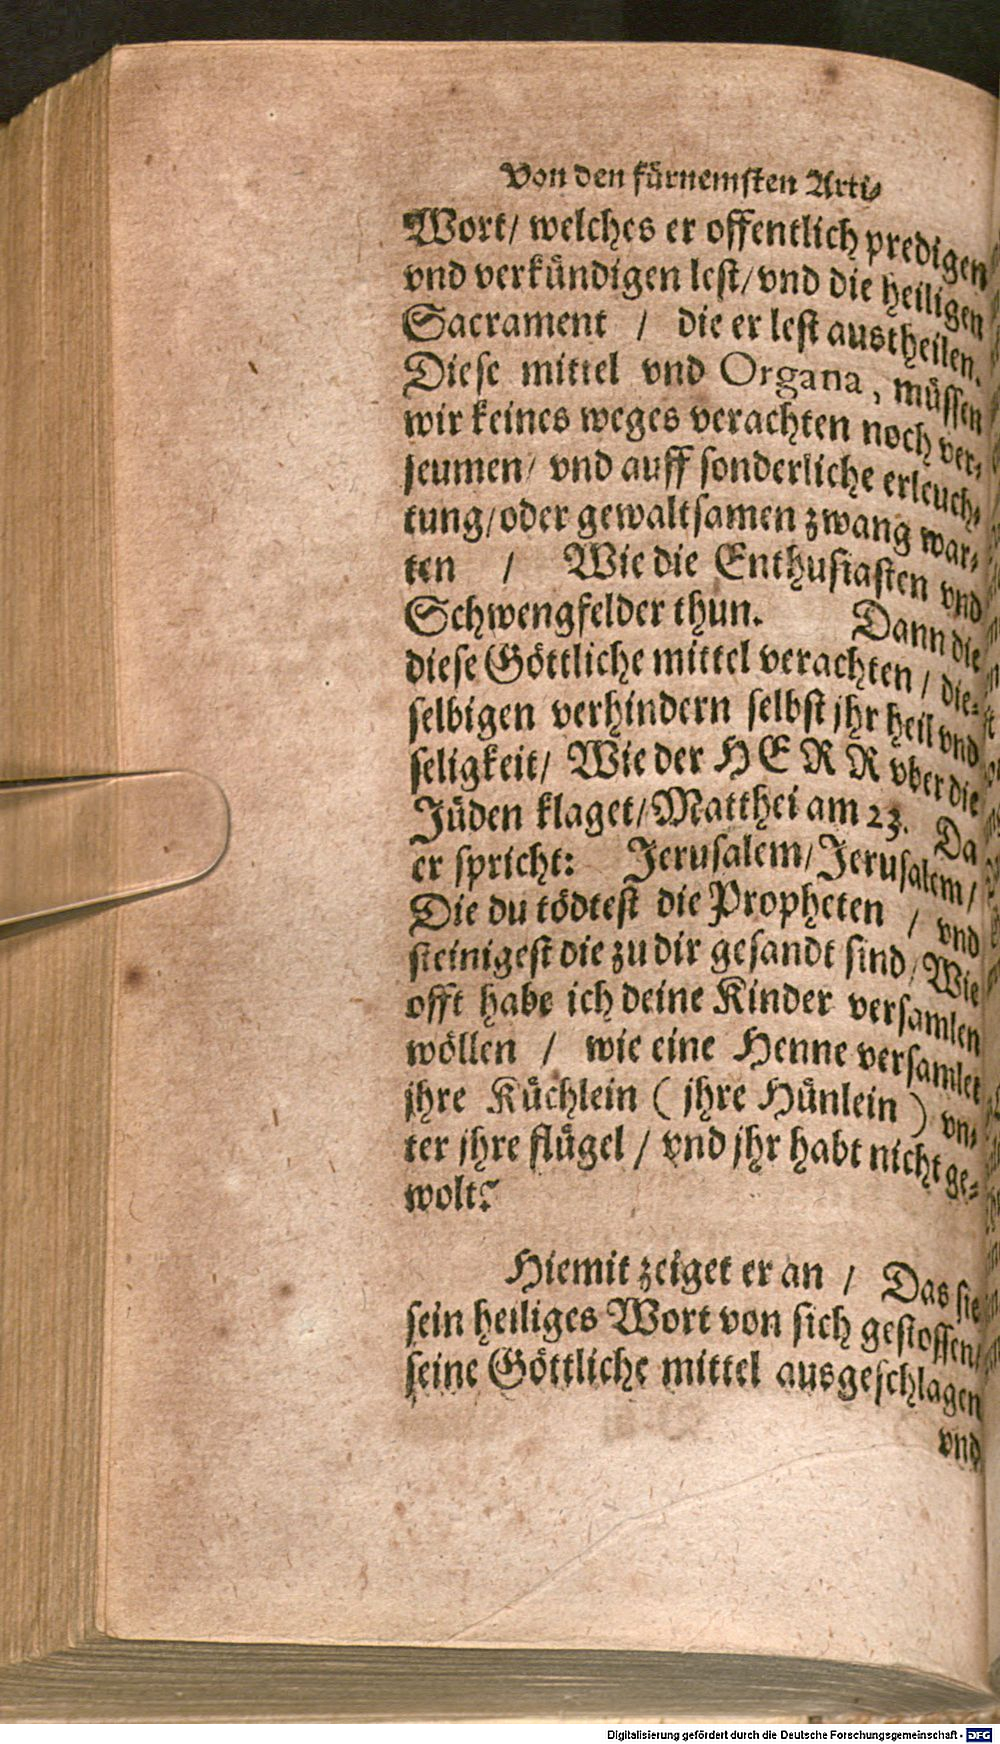 Von den fürnemsten Arti⸗
Wort/ welches er offentlich predigen
vnd verkündigen lest/ vnd die heiligen
Sacrament / die er lest austheilen.
Diese mittel vnd Organa, müssen
wir keines weges verachten noch ver⸗
seumen/ vnd auff sonderliche erleuch⸗
tung/oder gewaltsamen zwang war⸗
ten / Wie die Enthusiasten vnd
Schwengfelder thun. Dann die
diese Göttliche mittel verachten / die⸗
selbigen verhindern selbst jhr heil vnd
seligkeit/ Wie der HERR vber die
Jüden klaget/Matthei am 23. Da
er spricht: Jerusalem/Jerusalem/
Die du tödtest die Propheten / vnd
steinigest die zu dir gesandt sind/ Wie
offt habe ich deine Kinder versamlen
wöllen / wie eine Henne versamlet
jhre Küchlein ( jhre Hünlein ) vn⸗
ter jhre flügel / vnd jhr habt nicht ge⸗
wolt?
Hiemit zeiget er an / Das sie
sein heiliges Wort von sich gestossen/
seine Göttliche mittel ausgeschlagen
vnd
Digitalisierung gefördert durch die Deutsche Forschungsgemeinschaft - DFG